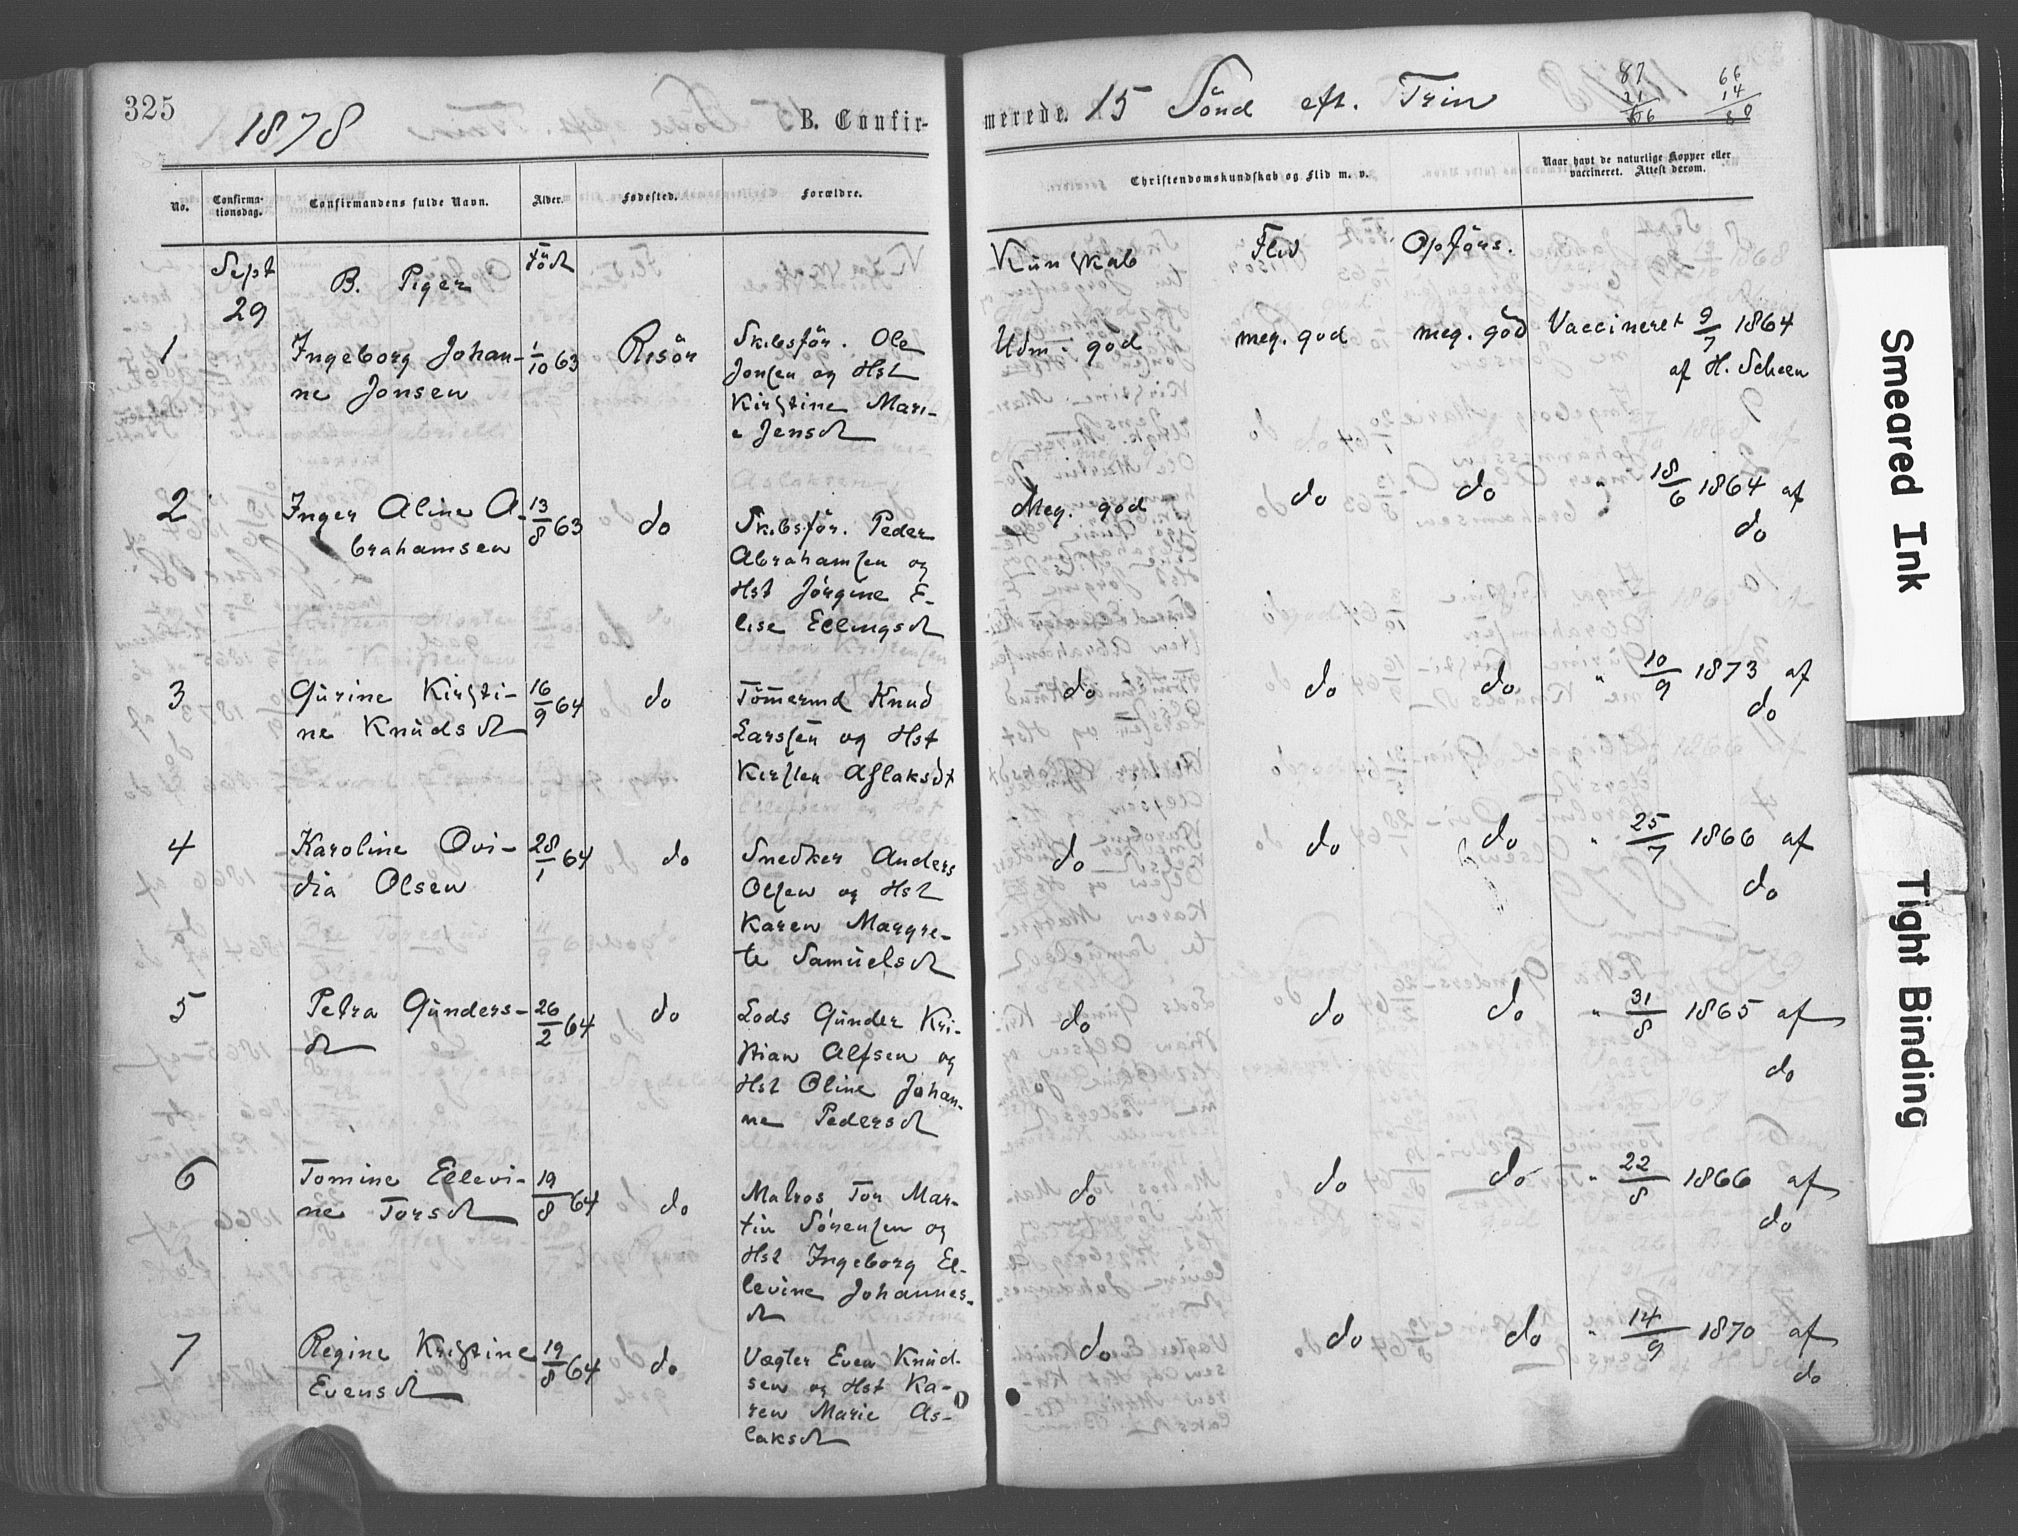 325
1878
B. Confir-
merede. 15 Sönd eft. Trin
87
21
66
66
14
80
No.
Confirma-
tionsdag.
Confirmandens fulde Navn.
Alder.
Fødested.
Forældre.
Christendomskundskab og Flid m. v.
Naar havt de naturlige Kopper eller
vaccineret. Attest derom.
Sept
29
B. Piger
Föd
Kundskab
Flid
Opförs.
1
Ingeborg Johan-
ne Jonsen
1/10 63
Risör
Skibsför. Ole
Jonsen og Hst
Kirstine Mari-
e Jensdt
Udm. god
meg. god
meg. god
Vaccineret 9/7 1864
af H. Scheen
2
Inger Aline A-
brahamsen
13/8 63
do
Skibsför. Peder
Abrahamsen og
Hst Jørgine E-
lise Ellingsdt
Meg. god
do
do
" 18/6 1864 af
do
3
Gurine Kirsti-
ne Knudsdt
16/9 64
do
Tömermd Knud
Larssen og Hst
Kirsten Aslaksdt
do
do
do
" 10/9 1873 af
do
4
Karoline Ovi-
dia Olsen
28/1 64
do
Snedker Anders
Olsen og Hst
Karen Margre-
te Samuelsdt
do
do
do
" 25/7 1866 af
do
5
Petra Gunders-
dt
26/2 64
do
Lods Gunder Kri-
stian Alfsen og
Hst Oline Johan-
ne Pedersdt
do
do
do
" 31/8 1865 af
do
6
Tomine Ellevi-
ne Torsdt
19/8 64
do
Matros Tor Mar-
tin Sörensen og
Hst Ingeborg El-
levine Johannes-
dt
do
do
do
" 22/8 1866 af
do
7
Regine Kristine
Evensdt
19/8 64
do
Vægter Even Knud-
sen og Hst Ka-
ren Marie As-
laksdt
do
do
do
" 14/9 1870 af
do
Smeared Ink
Tight Binding